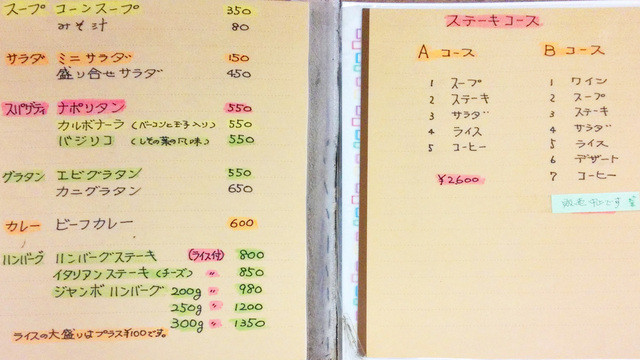 スープ コーンスープ 350
みそ汁 80
サラダ ミニサラダ 150
盛り合せサラダ 450
スパゲティ ナポリタン 550
カルボナーラ (ベーコンと玉子入り) 550
バジリコ (しその葉の風味) 550
グラタン エビグラタン 550
カニグラタン 650
カレー ビーフカレー 600
ハンバーグ ハンバーグステーキ (ライス付) 800
イタリアンステーキ (チーズ) 〃 850
ジャンボハンバーグ 200g 〃 980
250g 〃 1200
300g 〃 1350
ライスの大盛りはプラス¥100です。
ステーキコース
Aコース
1 スープ
2 ステーキ
3 サラダ
4 ライス
5 コーヒー
¥2600
Bコース
1 ワイン
2 スープ
3 ステーキ
4 サラダ
5 ライス
6 デザート
7 コーヒー
中です